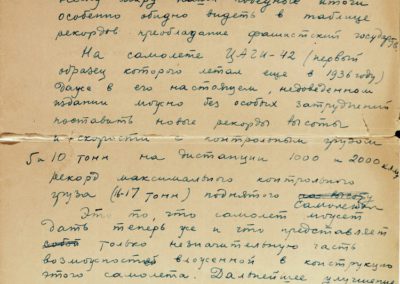 особенно обидно видеть в таблице
рекордов преобладание фашистских государств.
На самолете ЦАГИ-42 (первый
образец которого летал еще в 1936 году)
Даже в его настоящем, недоведенном
издании можно без особых затруднений
поставить новые рекорды высоты
и скорости с контрольным грузом
5 и 10 тонн на дистанции 1000 и 2000 клм,
рекорд максимального контрольного
груза (16-17 тонн) поднятого самолетом
Это то, что самолет может
дать теперь же и что представляет
собой только незначительную часть
возможностей вложенной в конструкцию
этого самолета. Дальнейшее улучшение